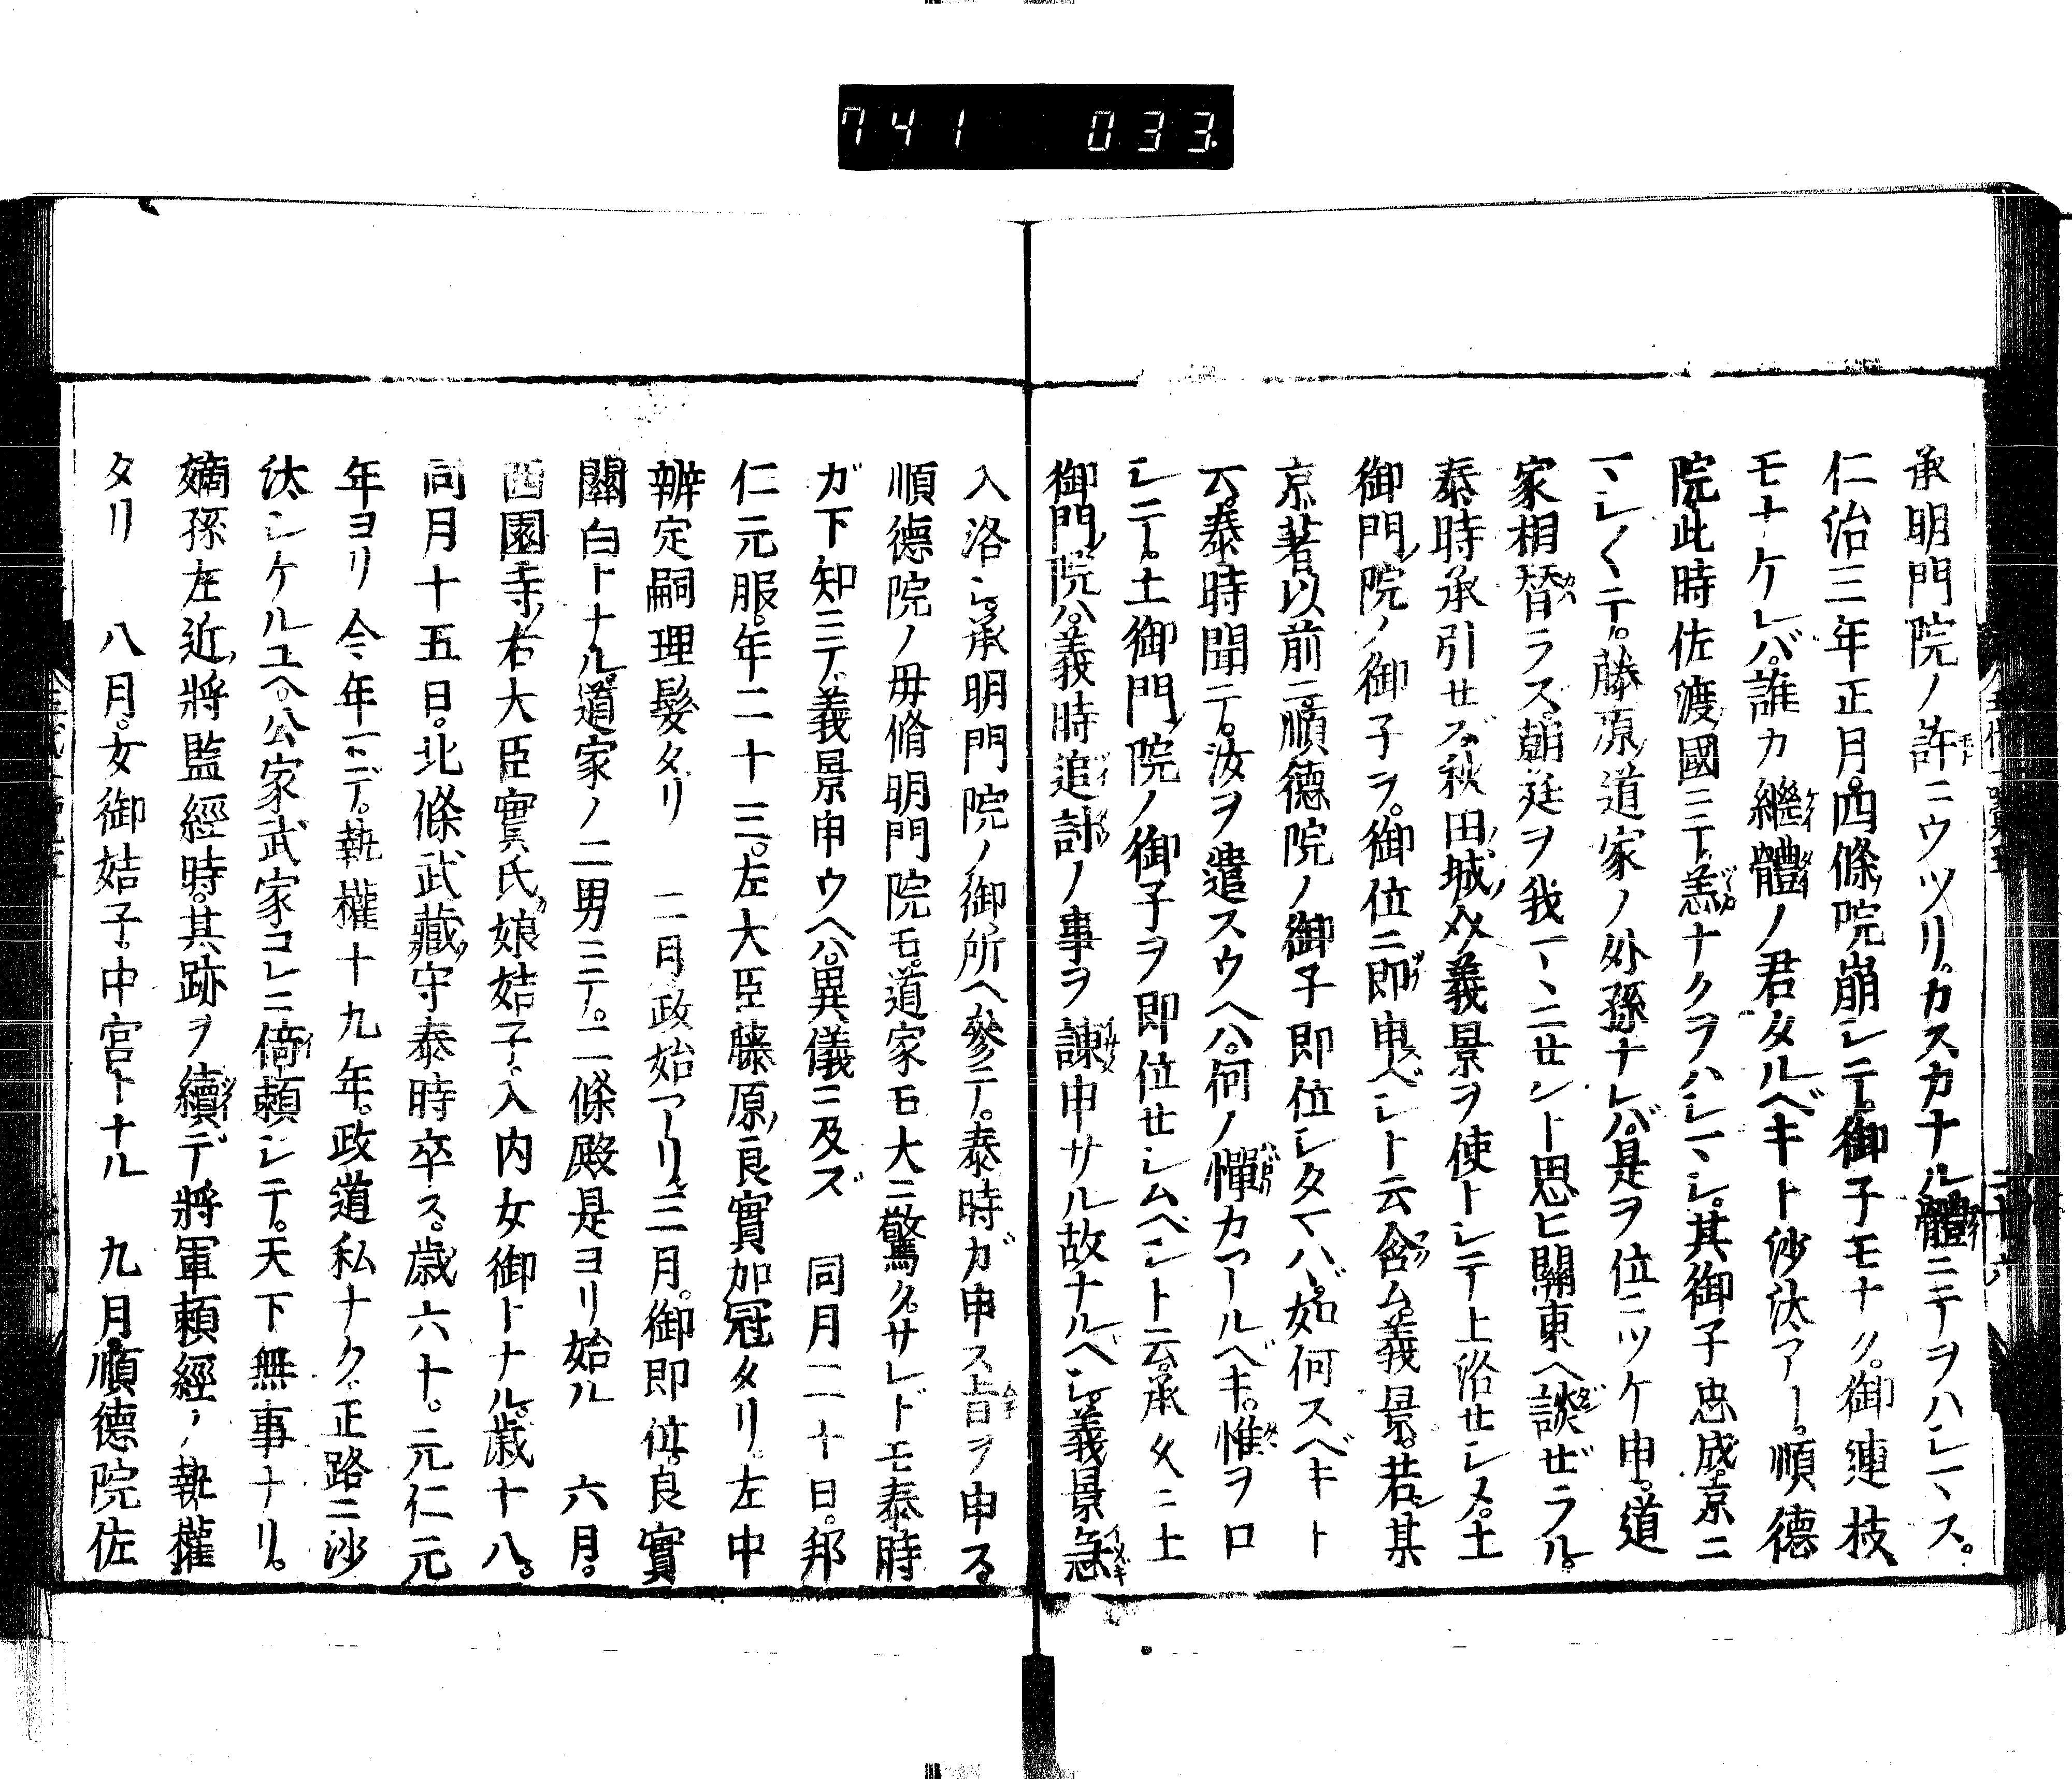 741 033
承明門院ノ許ニウツリ。カスカナル體ニテヲハシマス。
仁治三年正月。四條院崩シテ。御子モナク。御連枝
モナケレバ。誰カ繼體ノ君タルベキト沙汰アリ。順德
院此時佐渡國ニテ恙ナクヲハシマシ。其御子忠成。京ニ
マシ〳〵テ。藤原道家ノ外孫ナレバ。是ヲ位ニツケ申。道
家相替ラス。朝廷ヲ我マヽニセント思ヒ關東ヘ談ゼラル。
泰時承引セズ。秋田城介義景ヲ使トシテ上洛セシメ。土
御門院ノ御子ヲ。御位ニ即申ベシト云含ム。義景。若其
京著以前ニ。順德院ノ御子即位シタマハヾ。如何スベキト
云。泰時聞テ。汝ヲ遣スウヘハ。何ノ憚カアルベキ。惟ヲロ
シテ。土御門院ノ御子ヲ即位セシムベシト云。承久ニ土
御門院ハ。義時追討ノ事ヲ諫申サル故ナルベシ。義景急
入洛シ。承明門院ノ御所ヘ參テ。泰時ガ申ス旨ヲ申ス。
順德院ノ母脩明門院モ。道家モ大ニ驚ク。サレドモ泰時
ガ下知ニテ。義景申ウヘハ。異儀ニ及ズ 同月二十日。邦
仁元服。年二十三。左大臣藤原良實加冠タリ。左中
辨定嗣理髮タリ 二月政始アリ。三月。御即位。良實
關白トナル。道家ノ二男ニテ。二條殿是ヨリ始ル 六月。
西園寺右大臣實氏娘姞子入内女御トナル。歳十八。
同月十五日。北條武藏守泰時卒ス。歳六十。元仁元
年ヨリ今年マデ。執權十九年。政道私ナク。正路ニ沙
汰シケルユヘ。公家武家コレニ倚頼シテ。天下無事ナリ。
嫡孫左近將監經時。其跡ヲ續デ將軍頼經ノ執權
タリ 八月。女御姞子。中宮トナル 九月順德院佐